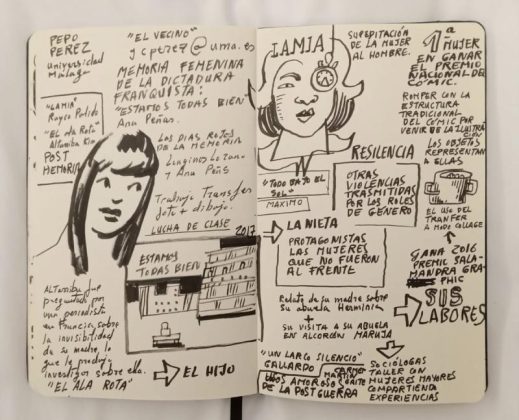 PEPO
PEREZ
Universidad
Málaga
"LAMIA"
Rayco Pulido
"El ala Rota"
Altarriba Kim
POST
MEMORIA
"EL VECINO"
jcperez@uma.es
MEMORIA FEMENINA
DE LA DICTADURA
FRANQUISTA:
"ESTAMOS TODAS BIEN"
Ana Peñas.
LOS DÍAS ROJOS
DE LA MEMORIA
+ Ana Peñas
Trabajo Transfer
foto + dibujo.
LUCHA DE CLASE
2017
ESTAMOS
TODAS BIEN
Altarriba que
preguntado por
una periodista
en Francia, sobre
la invisibilidad
de su madre, lo
que le produjo
investigar sobre ella.
"EL ALA ROTA"
EL HIJO
LAMIA
SUPEDITACIÓN
DE LA MUJER
AL HOMBRE.
1ª
MUJER
EN GANAR
EL PREMIO
NACIONAL DEL
COMIC.
ROMPER CON LA
ESTRUCTURA
TRADICIONAL
DEL COMIC POR
VENIR DE LA ILUSTRACIÓN
LOS OBJETOS
REPRESENTAN
A ELLAS
RESILENCIA
"TODO BAJO EL
SOL"
MAXIMO
OTRAS
VIOLENCIAS
TRASMITIDAS
POR LOS ROLES
DE GÉNERO
EL USO DEL
TRANFER A
MODO COLLAGE
LA NIETA
PROTAGONISTAS
LAS MUJERES
QUE NO FUERON
AL FRENTE
GANA 2016
PREMIO SALA-
MANDRA GRA-
PHIC
SUS
LABORES
Relato de su madre sobre
su abuela Herminia
+
SU VISITA A SU ABUELA
EN ALCORCÓN MARUJA
"UN LARGO SILENCIO"
GALLARDO
CARMEN
MARTÍN
GAITE
USOS AMOROSO
DE LA POSTGUERRA
SOCIÓLOGAS
TALLER CON
MUJERES MAYORES
COMPARTIENDO
EXPERIENCIAS